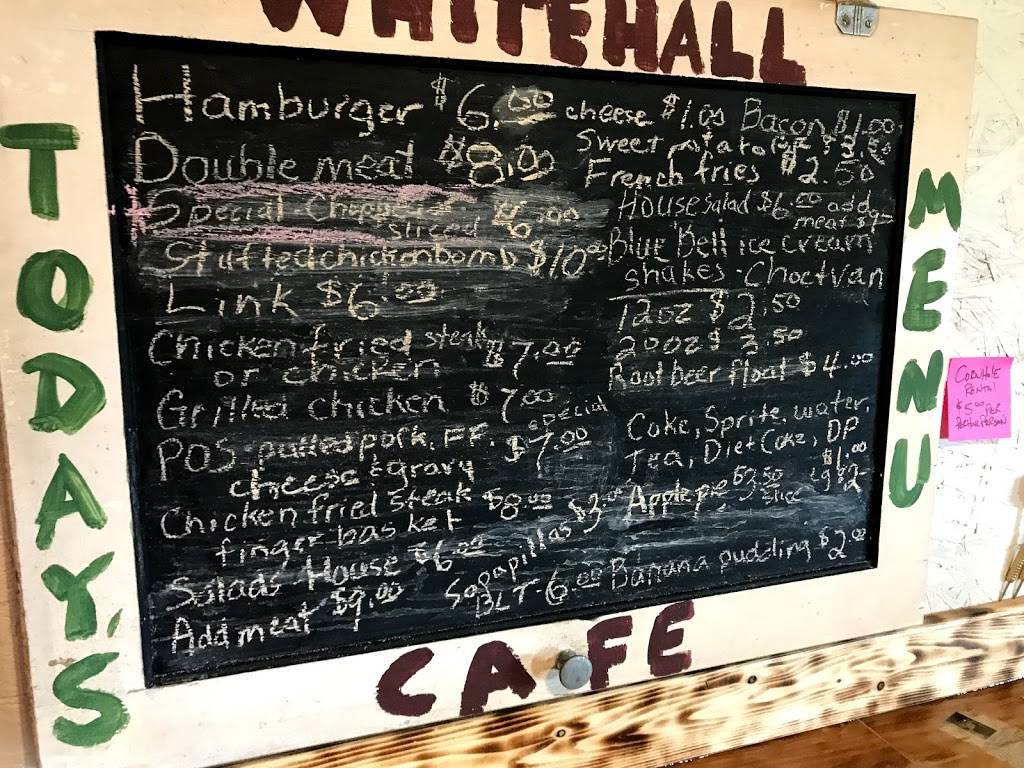 WHITEHALL
TODAY'S
MENU
CAFE
Hamburger $6.00
Double meat $8.00
Special-Chopped
sliced $6.00
Stuffed chicken bomb $10.00
Link $6.00
Chicken fried steak
or chicken $7.00
Grilled chicken $7.00
POS-pulled pork, FF, special
cheese & gravy $7.00
Chicken fried steak
finger basket $8.00
Salads House $6.00
Add meat $9.00
Sopapillas $3.00
BLT-6.00
cheese $1.00 Bacon $1.00
Sweet potato $3.50
French fries $2.50
House salad $6.00 add
meat $9
Blue Bell ice cream
shakes-Choctvan
12oz $2.50
20oz $3.50
Root beer float $4.00
Coke, Sprite, water,
Tea, Diet Coke, DP
$1.00
Apple pie $3.50
slice
Banana pudding $2.00
CORNHOLE
RENTAL
$5.00 PER
PERSON